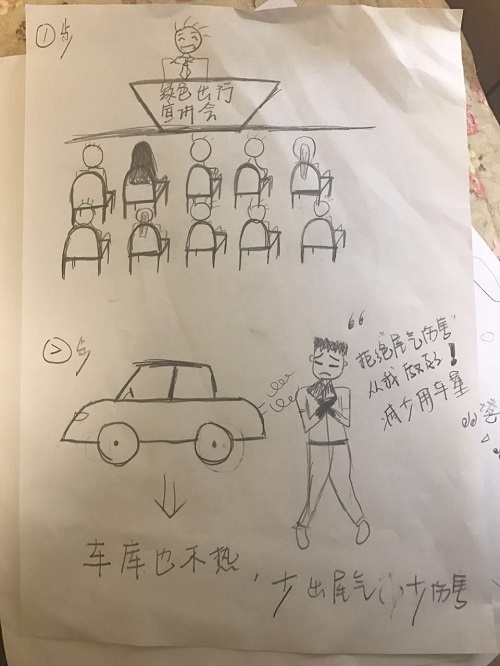 ①步
绿色出行
宣讲会
②步
“拒绝“尾气伤害”
从我做起!
减少用车量
车库也不热,
少出尾气少伤害